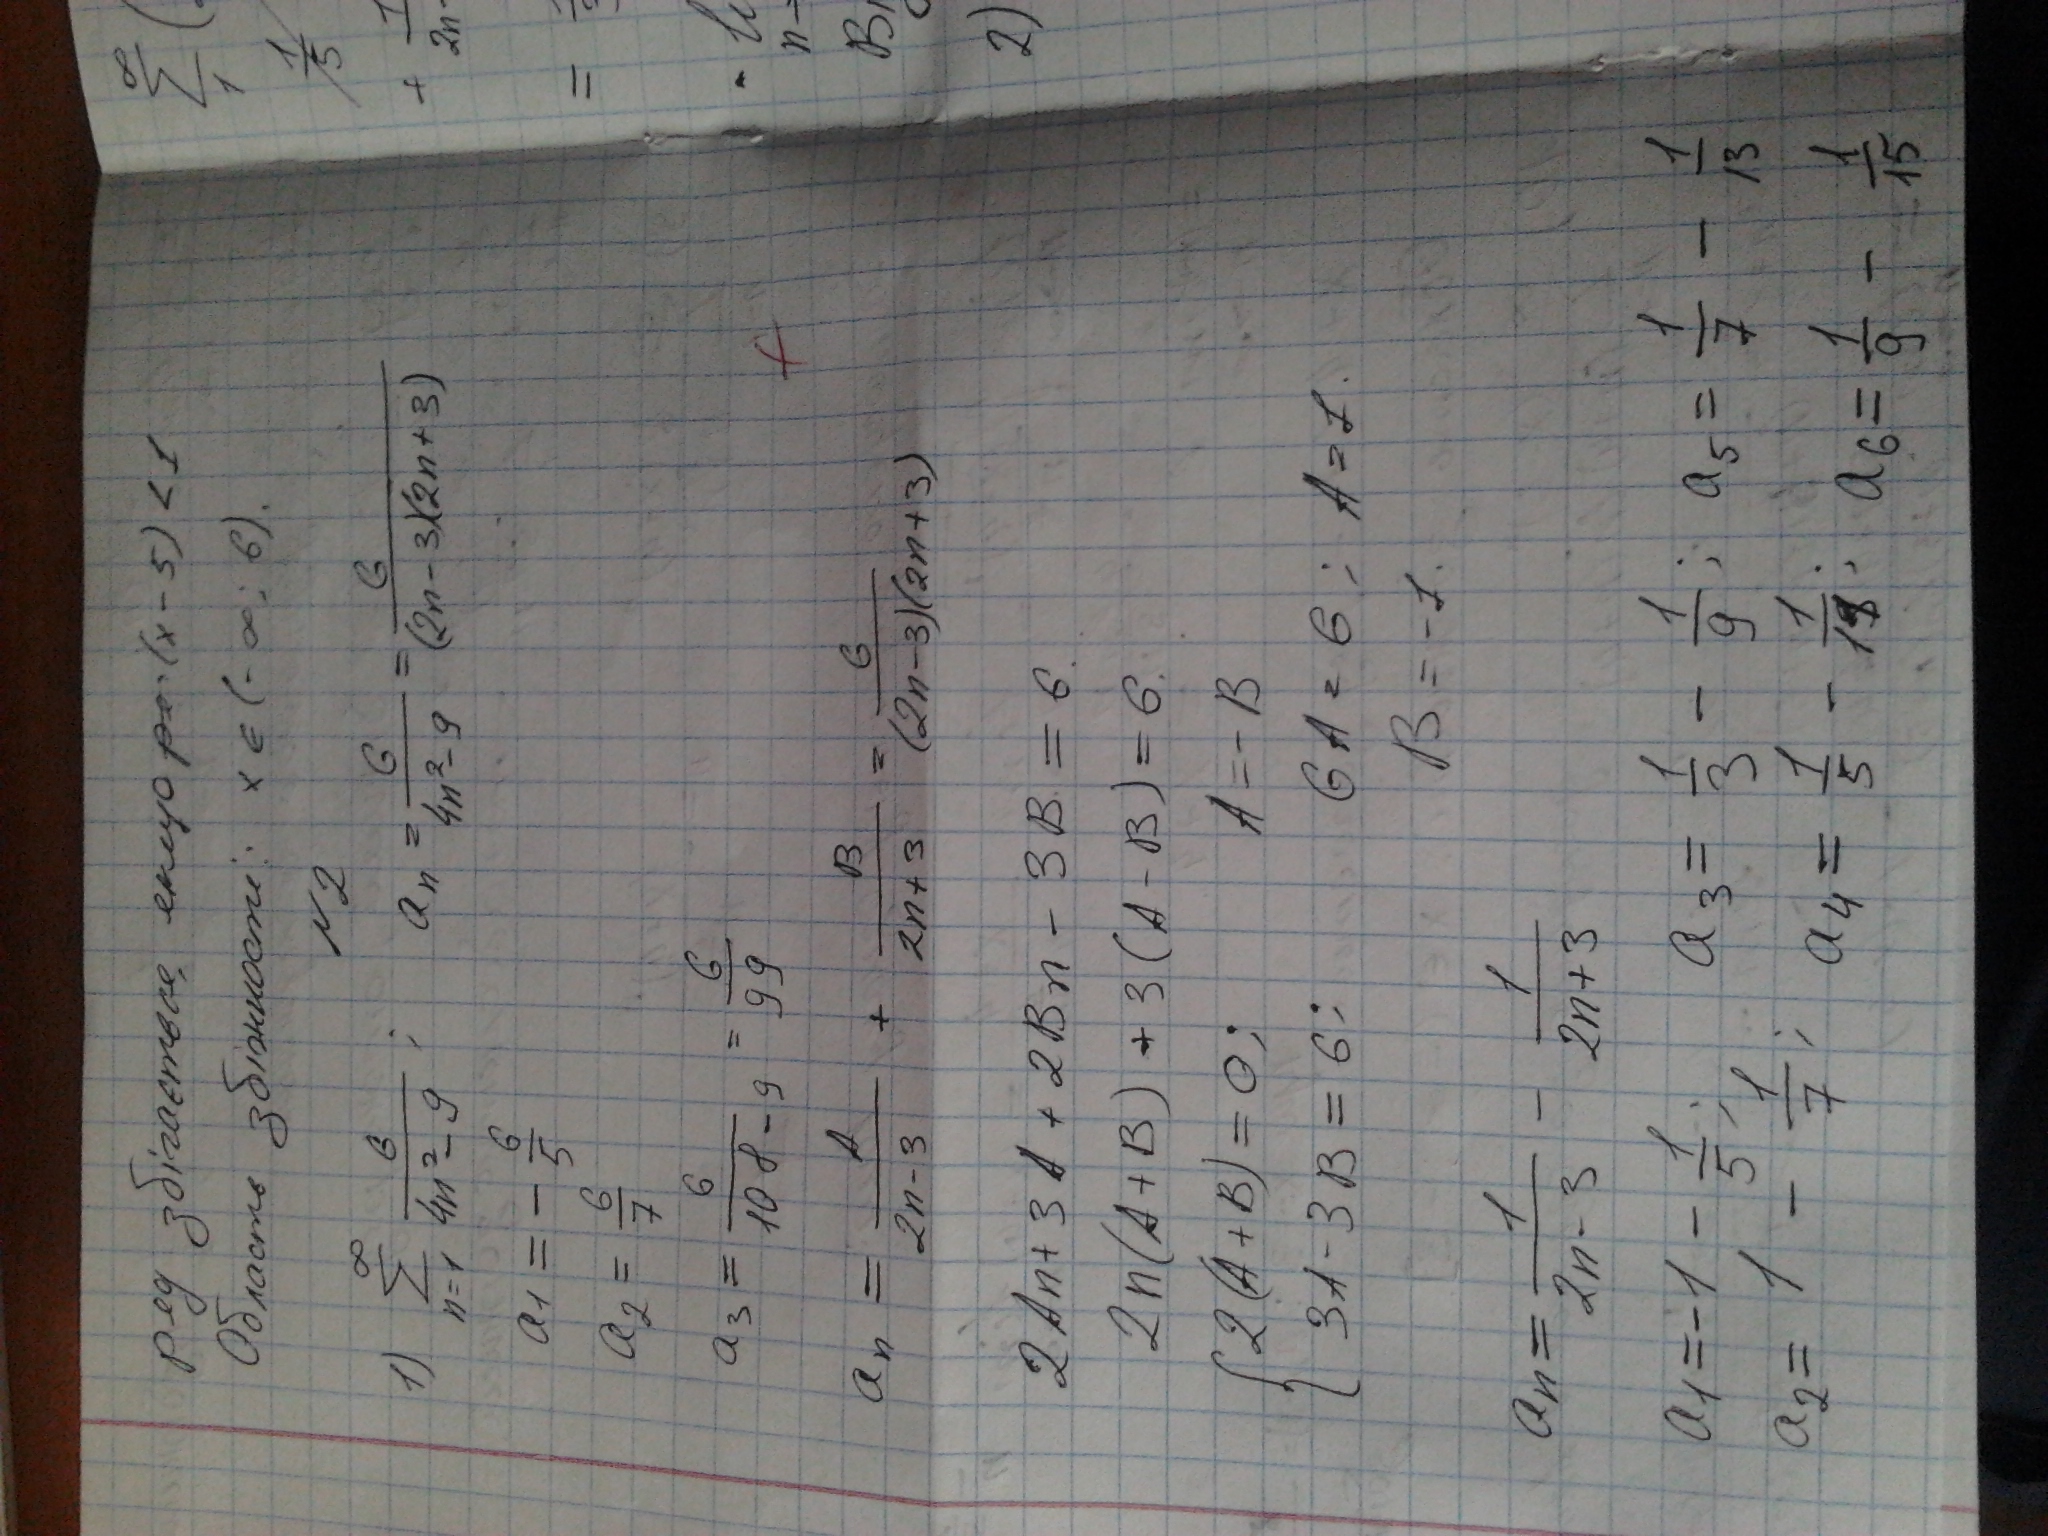 ряд збігається, якщо (x - 5) < 1
Область збіжності: x ∈ (- ∞; 6).
№2
1) ∑_{n=1}^{∞} 6/(4n² - 9) ; a_n = 6/(4n² - 9) = 6/((2n - 3)(2n + 3))
a_1 = - 6/5
a_2 = 6/7
a_3 = 6/(108 - 9) = 6/99
+
a_n = A/(2n - 3) + B/(2n + 3) = 6/((2n - 3)(2n + 3))
2An + 3A + 2Bn - 3B = 6.
2n(A + B) + 3(A - B) = 6.
{ 2(A + B) = 0; A = - B
3A - 3B = 6; 6A = 6; A = 1.
B = -1.
a_n = 1/(2n - 3) - 1/(2n + 3)
a_1 = -1 - 1/5; a_3 = 1/3 - 1/9; a_5 = 1/7 - 1/13
a_2 = 1 - 1/7; a_4 = 1/5 - 1/11; a_6 = 1/9 - 1/15
∞
∑ (
1
1/5
+ 1/2n-
=
n→
2)